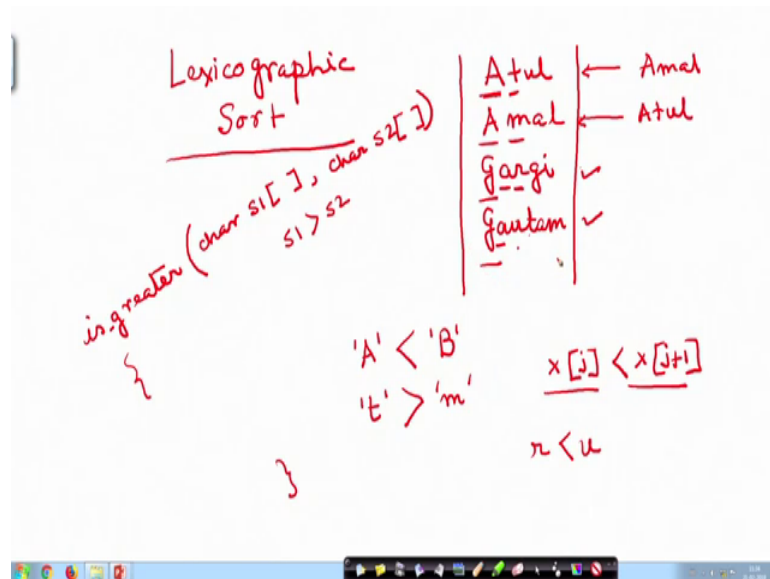 Lexicographic
Sort
is.greater (char s1[ ], char s2[ ])
s1 > s2
{
}
Atul ← Amal
Amal ← Atul
Gargi ✓
Gautam ✓
'A' < 'B'
't' > 'm'
x[j] < x[j+1]
r < u